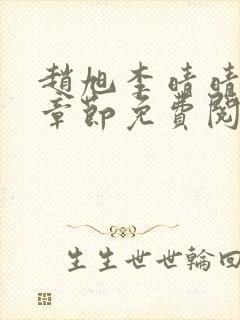 趙旭李晴晴
章節免費閱
生生世世輪回